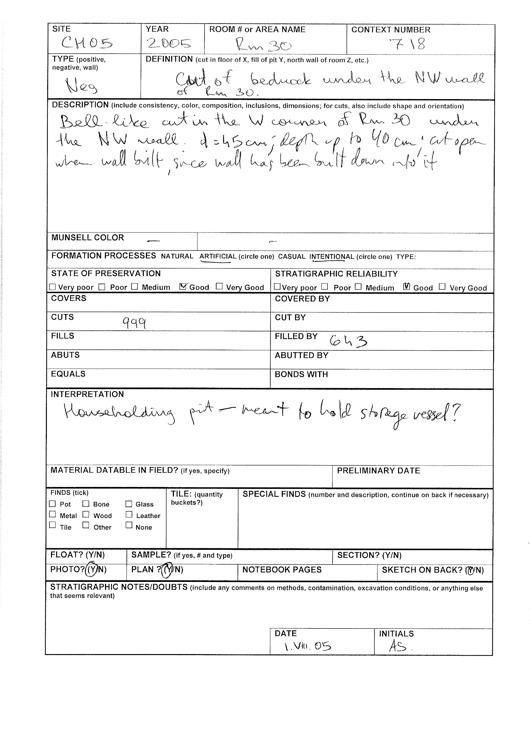 SITE YEAR ROOM # or AREA NAME CONTEXT NUMBER
CH05 2005 Rm 30 718
TYPE (positive, negative, wall) DEFINITION (cut in floor of X, fill of pit Y, north wall of room Z, etc.)
Neg Cut of bedrock under the NW wall
of Rm 30.
DESCRIPTION (include consistency, color, composition, inclusions, dimensions; for cuts, also include shape and orientation)
Bell-like cut in the W corner of Rm 30 under
the NW wall. d=45cm; depth up to 40 cm; cut open
when wall bilt, since wall has been built down into it
MUNSELL COLOR — –
FORMATION PROCESSES NATURAL ARTIFICIAL (circle one) CASUAL INTENTIONAL (circle one) TYPE:
STATE OF PRESERVATION STRATIGRAPHIC RELIABILITY
☐ Very poor ☐ Poor ☐ Medium ☑ Good ☐ Very Good ☐ Very poor ☐ Poor ☐ Medium ☑ Good ☐ Very Good
COVERS COVERED BY
CUTS 999 CUT BY
FILLS FILLED BY 643
ABUTS ABUTTED BY
EQUALS BONDS WITH
INTERPRETATION
Householding pit – meant to hold storage vessel?
MATERIAL DATABLE IN FIELD? (if yes, specify) PRELIMINARY DATE
FINDS (tick) TILE: (quantity buckets?) SPECIAL FINDS (number and description, continue on back if necessary)
☐ Pot ☐ Bone ☐ Glass
☐ Metal ☐ Wood ☐ Leather
☐ Tile ☐ Other ☐ None
FLOAT? (Y/N) SAMPLE? (if yes, # and type) SECTION? (Y/N)
PHOTO? (Y/N) PLAN? (Y/N) NOTEBOOK PAGES SKETCH ON BACK? (Y/N)
STRATIGRAPHIC NOTES/DOUBTS (include any comments on methods, contamination, excavation conditions, or anything else
that seems relevant)
DATE INITIALS
1.VIII.05 AS.